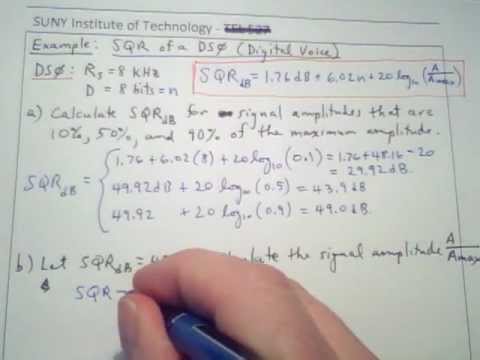 SUNY Institute of Technology -
Example: SQR of a DSØ (Digital Voice)
DSØ: Rs = 8 KHz
D = 8 bits = n
SQR dB = 1.76 dB + 6.02n + 20 log10 (A/Amax)
a) Calculate SQR dB for signal amplitudes that are
10%, 50%, and 90% of the maximum amplitude.
SQR dB = { 1.76 + 6.02(8) + 20 log10 (0.1) = 1.76 + 48.16 - 20
= 29.92 dB
49.92 dB + 20 log10 (0.5) = 43.9 dB
49.92 + 20 log10 (0.9) = 49.0 dB.
b) Let SQR dB = the signal amplitude A/Amax
SQR